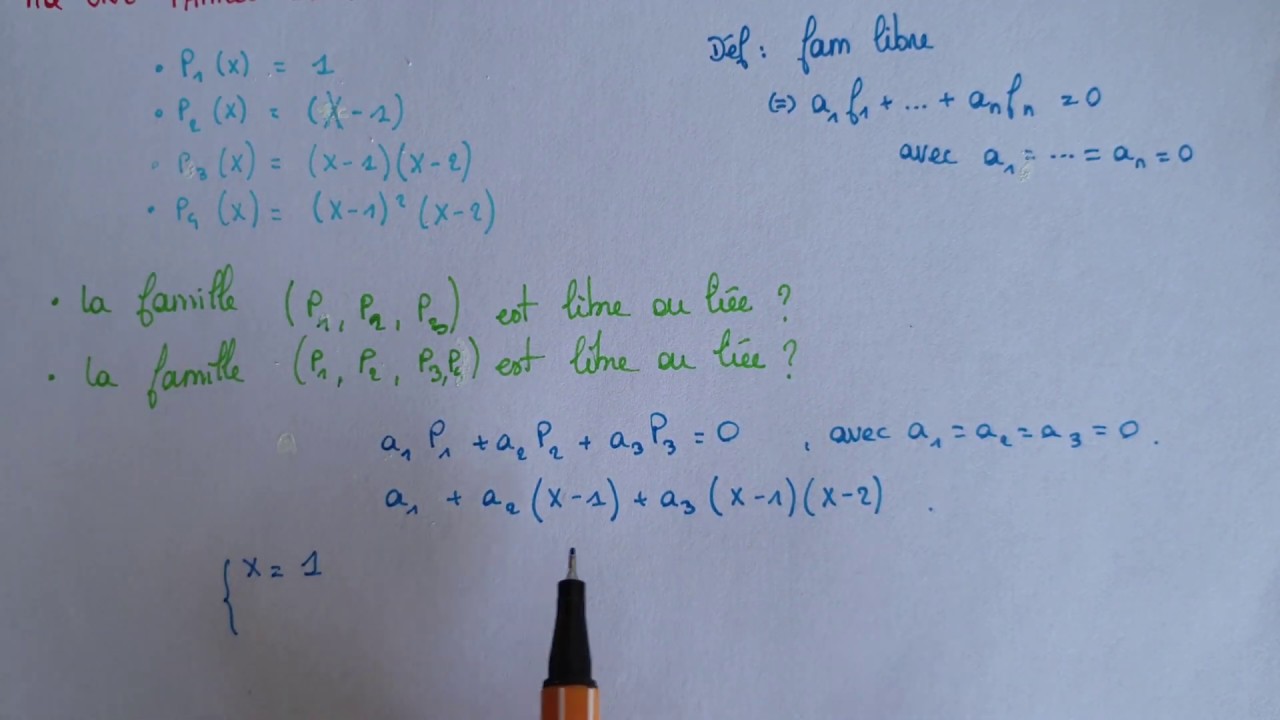 • P₁ (x) = 1
• P₂ (x) = (X - 1)
• P₃ (x) = (x-1)(x-2)
• P₄ (x) = (x-1)² (x-2)
Déf : fam libre
(=) a₁ f₁ + ... + aₙ fₙ = 0
avec a₁ = ... = aₙ = 0
• la famille (P₁, P₂, P₃) est libre ou liée ?
• la famille (P₁, P₂, P₃, P₄) est libre ou liée ?
a₁ P₁ + a₂ P₂ + a₃ P₃ = 0 , avec a₁ = a₂ = a₃ = 0 .
a₁ + a₂ (x-1) + a₃ (x-1)(x-2) .
{ x = 1